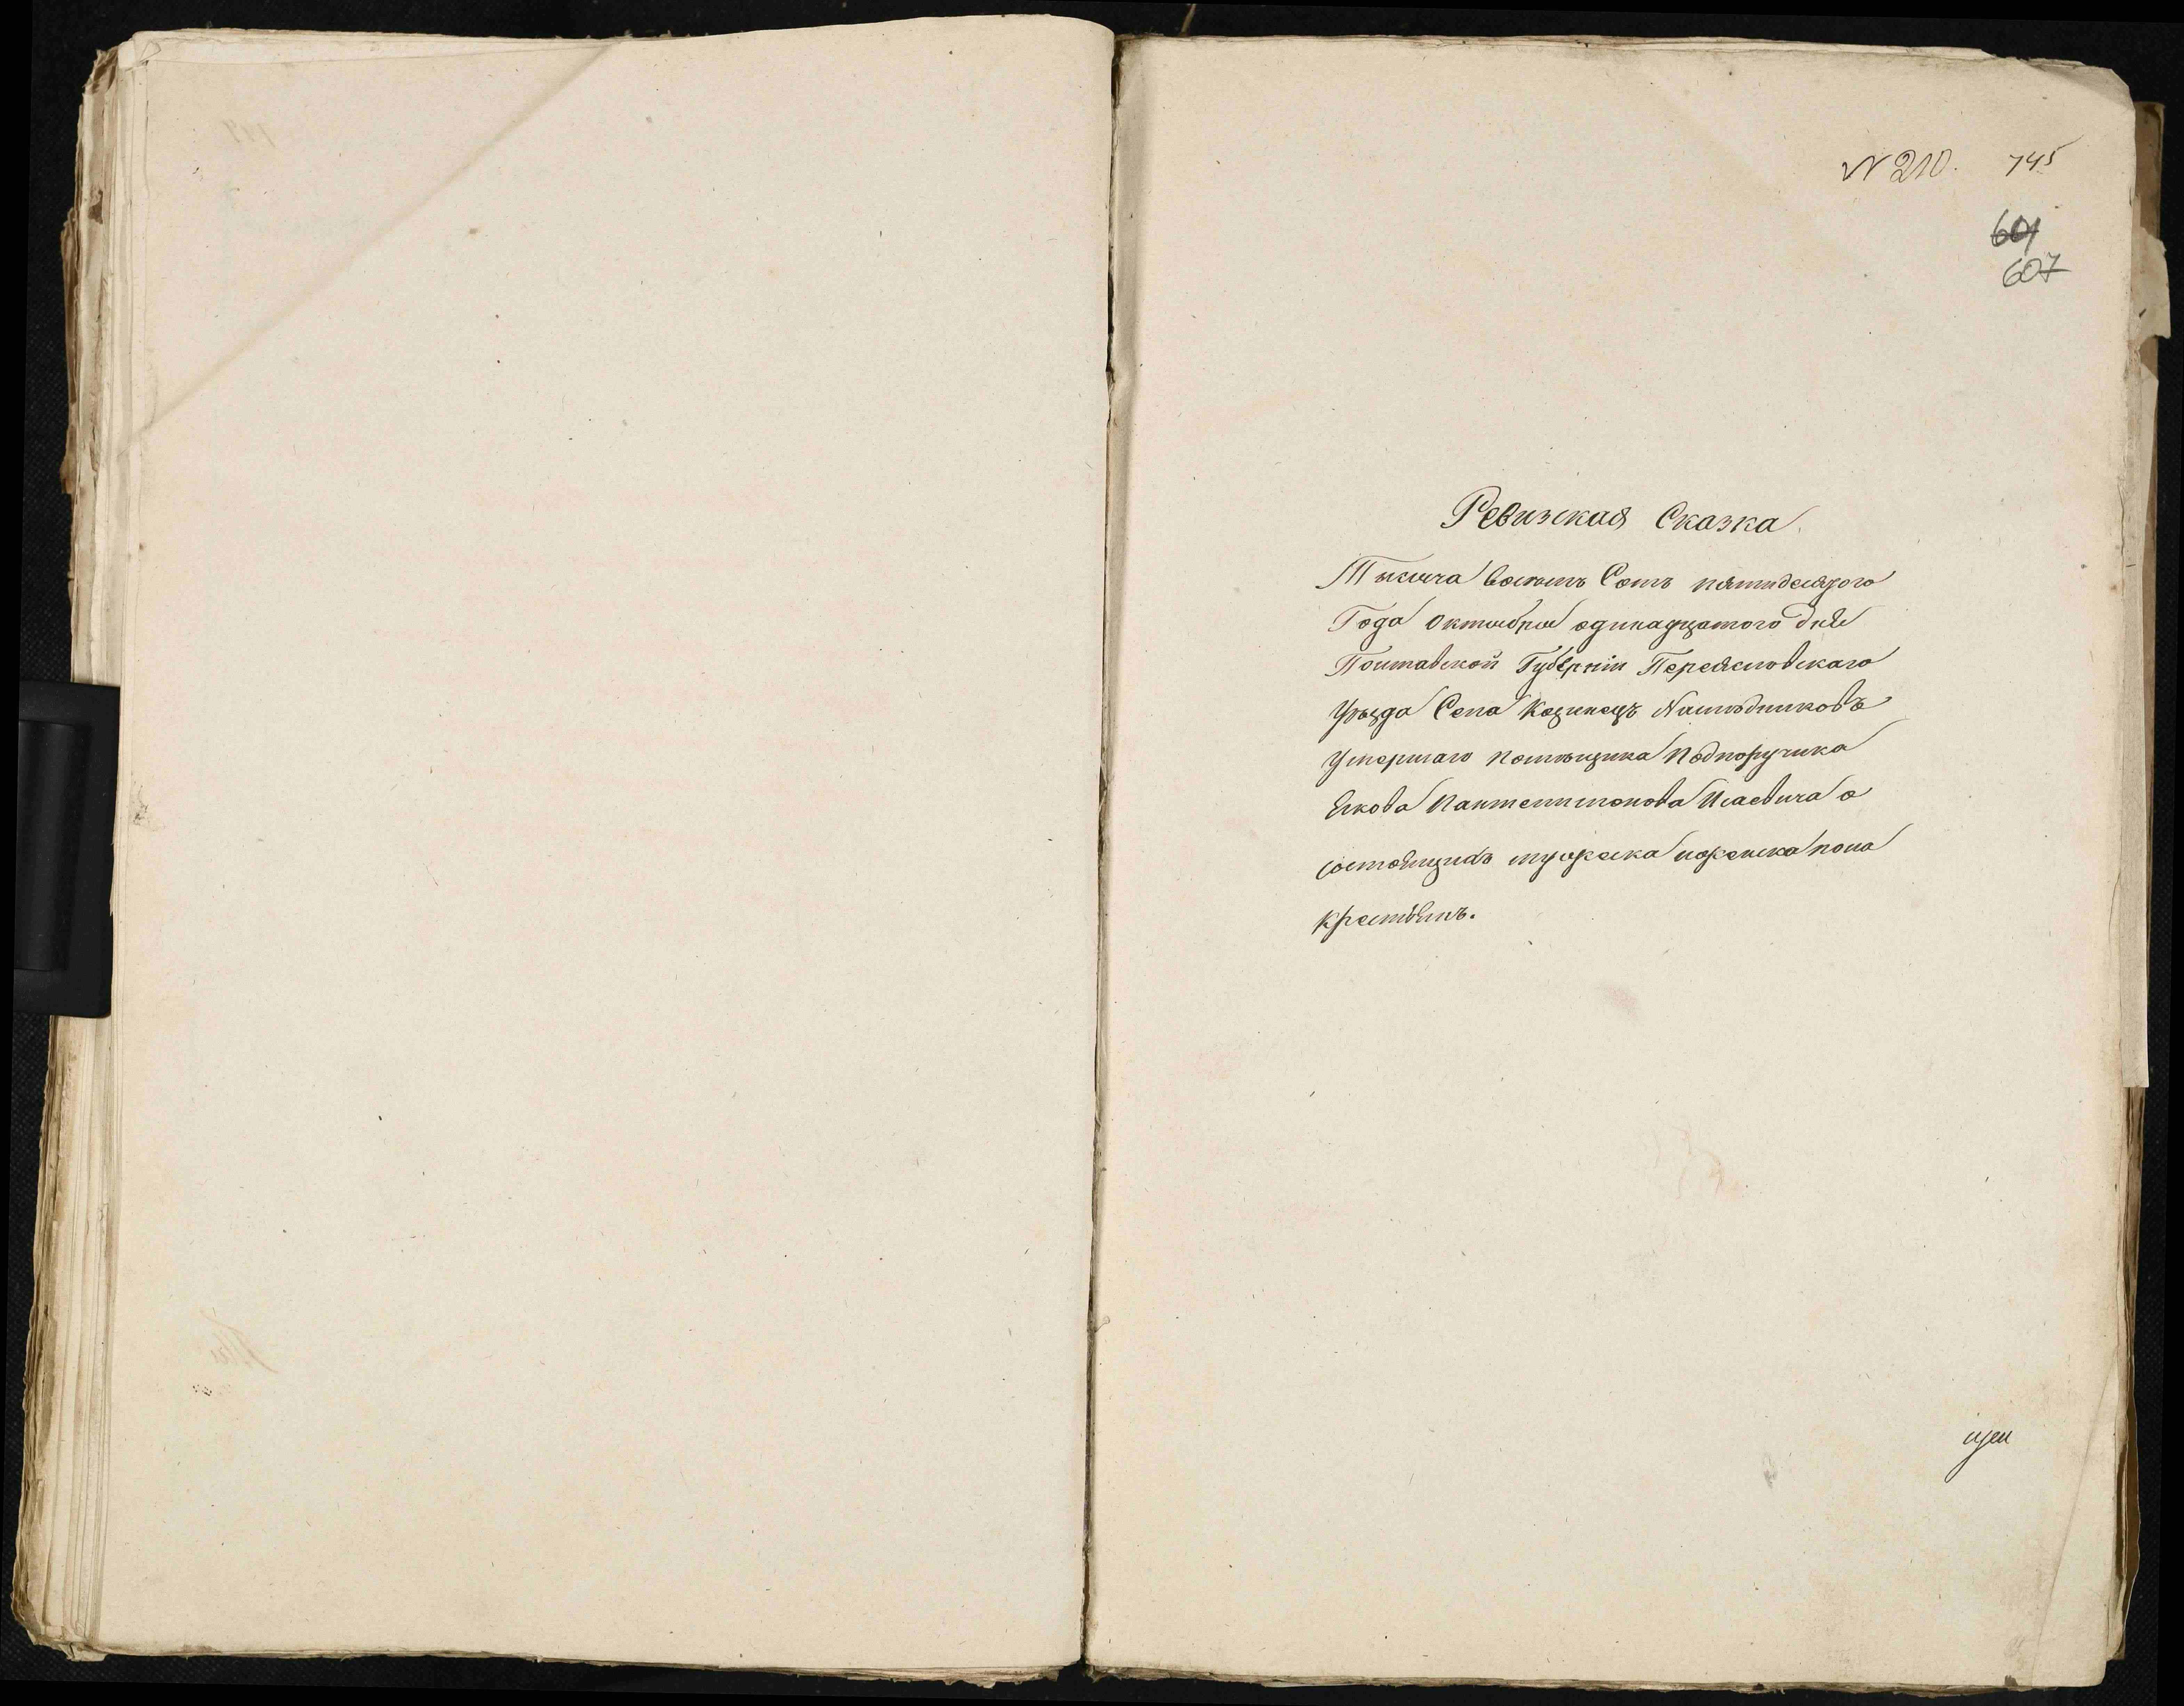 № 210. 745
601
607
Ревизская Сказка
Тысяча восемь Сотъ пятидесятого
Года Октября одинадцатого дня
Полтавской Губерніи Переясловскаго
Уѣзда Села Козинецъ Наслѣдниковъ
Умершаго помѣщика Подпоручика
Якова Пантелимонова Исаевича о
состоящихъ мужеска иженска пола
крестьянъ.